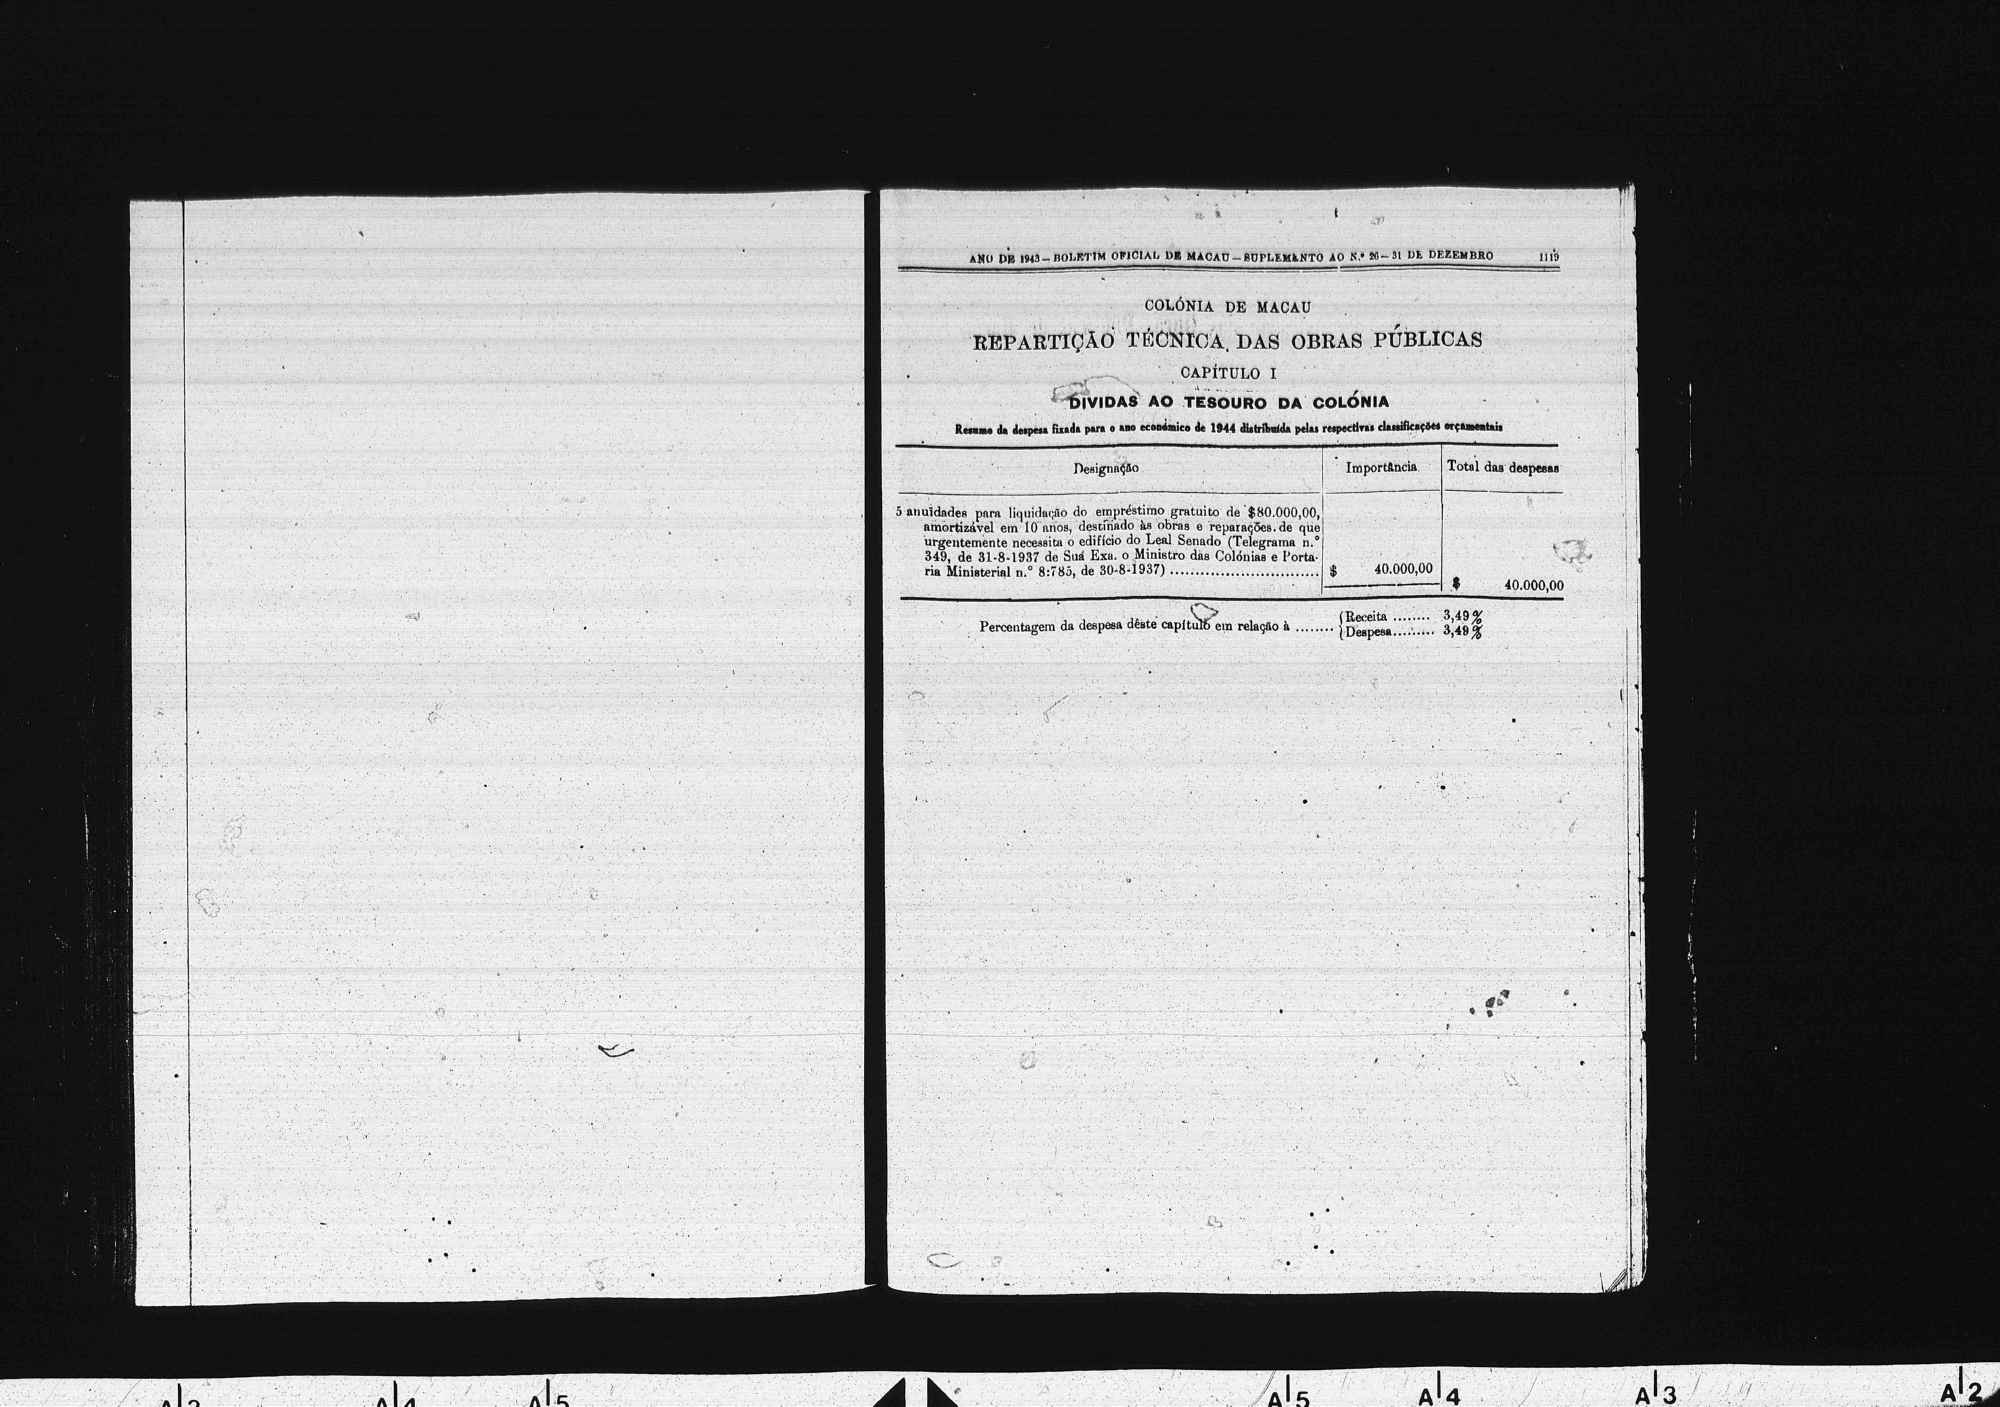 ANO DE 1943 — BOLETIM OFICIAL DE MACAU — SUPLEMENTO AO N.º 26 — 31 DE DEZEMBRO 1119
COLÓNIA DE MACAU
REPARTIÇÃO TÉCNICA DAS OBRAS PÚBLICAS
CAPÍTULO I
DÍVIDAS AO TESOURO DA COLÓNIA
Resumo da despesa fixada para o ano económico de 1944 distribuída pelas respectivas classificações orçamentais
Designação Importância Total das despesas
5 anuïdades para liquidação do empréstimo gratuito de $80.000,00,
amortizável em 10 anos, destinado às obras e reparações de que
urgentemente necessita o edifício do Leal Senado (Telegrama n.º
349, de 31-8-1937 de Sua Exa. o Ministro das Colónias e Porta-
ria Ministerial n.º 8:785, de 30-8-1937) .............................. $ 40.000,00
$ 40.000,00
Percentagem da despesa dêste capítulo em relação à ........ { Receita ........ 3,49%
{ Despesa......... 3,49%
A 3 A 4 A 5 A 5 A 4 A 3 A 2